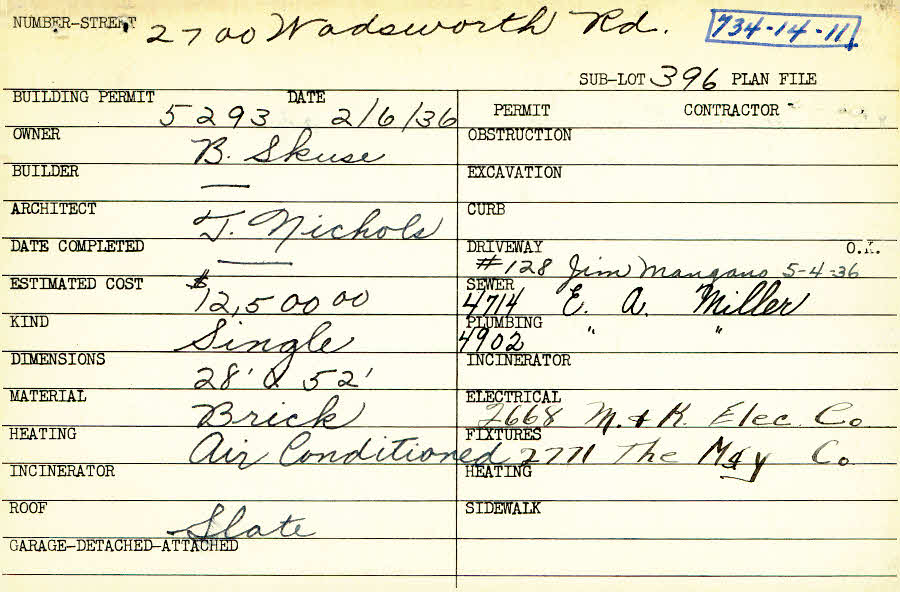 NUMBER-STREET 2700 Wadsworth Rd. 734-14-11
SUB-LOT 396 PLAN FILE
BUILDING PERMIT 5293 DATE 2/6/36
PERMIT CONTRACTOR
OWNER B. Skuse
OBSTRUCTION
BUILDER —
EXCAVATION
ARCHITECT J. Nichols
CURB
DATE COMPLETED —
DRIVEWAY O.K.
#128 Jim Mangano 5-4-36
ESTIMATED COST $12,500 00
SEWER 4714 E. A. Miller
KIND Single
PLUMBING 4902 " "
DIMENSIONS 28' & 52'
INCINERATOR
MATERIAL Brick
ELECTRICAL 2668 M. & K. Elec. Co
HEATING Air Conditioned
FIXTURES 2771 The May Co.
INCINERATOR
HEATING
ROOF Slate
SIDEWALK
GARAGE-DETACHED-ATTACHED